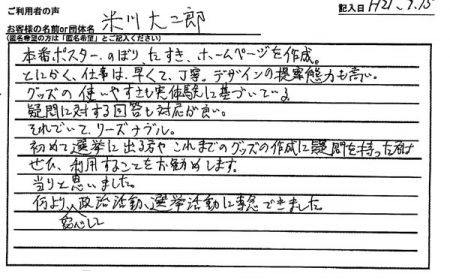 ご利用者の声
記入日 H21.9.15
お客様の名前or団体名 米川大二郎
(匿名希望の方は「匿名希望」とご記入ください)
本番ポスター、のぼり、たすき、ホームページを作成。
とにかく、仕事は、早くて、丁寧。デザインの提案能力も高い。
グッズの使いやすさも実体験に基づいている
疑問に対する回答も対応が良い。
それでいて、リーズナブル。
初めて選挙に出る方やこれまでのグッズの作成に疑問を持った方は
ぜひ、利用することをお勧めします。
当りと思いました。
何より、政治活動、選挙活動に専念できました
安心して